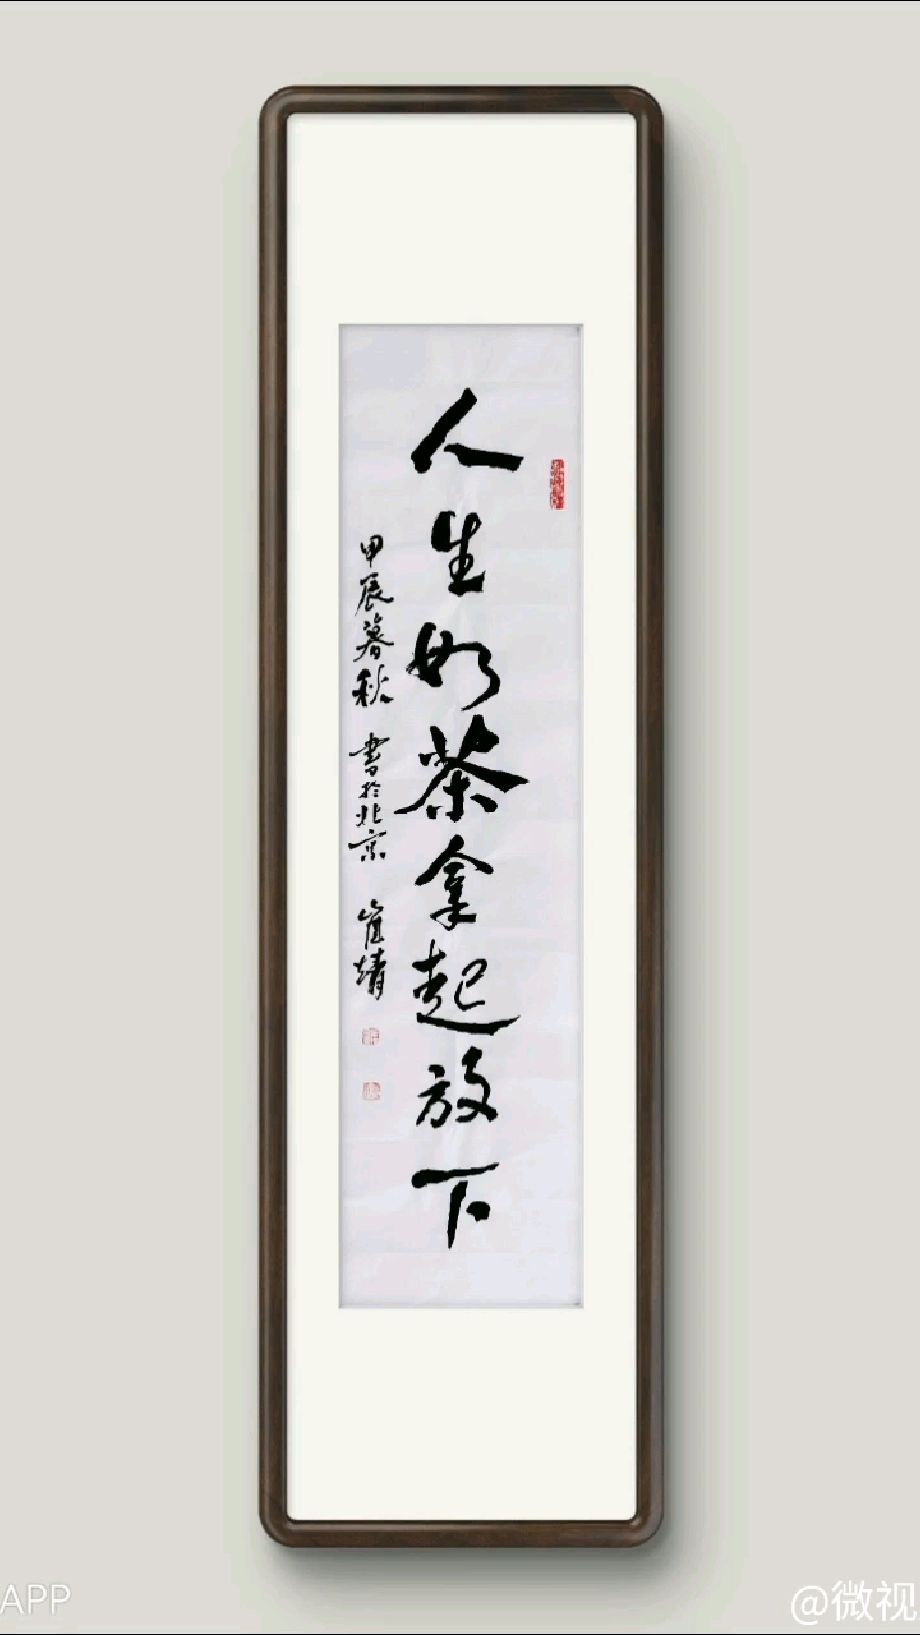 人生如茶拿起放下
甲辰暮秋 書於北京 崔靖
APP
@微视